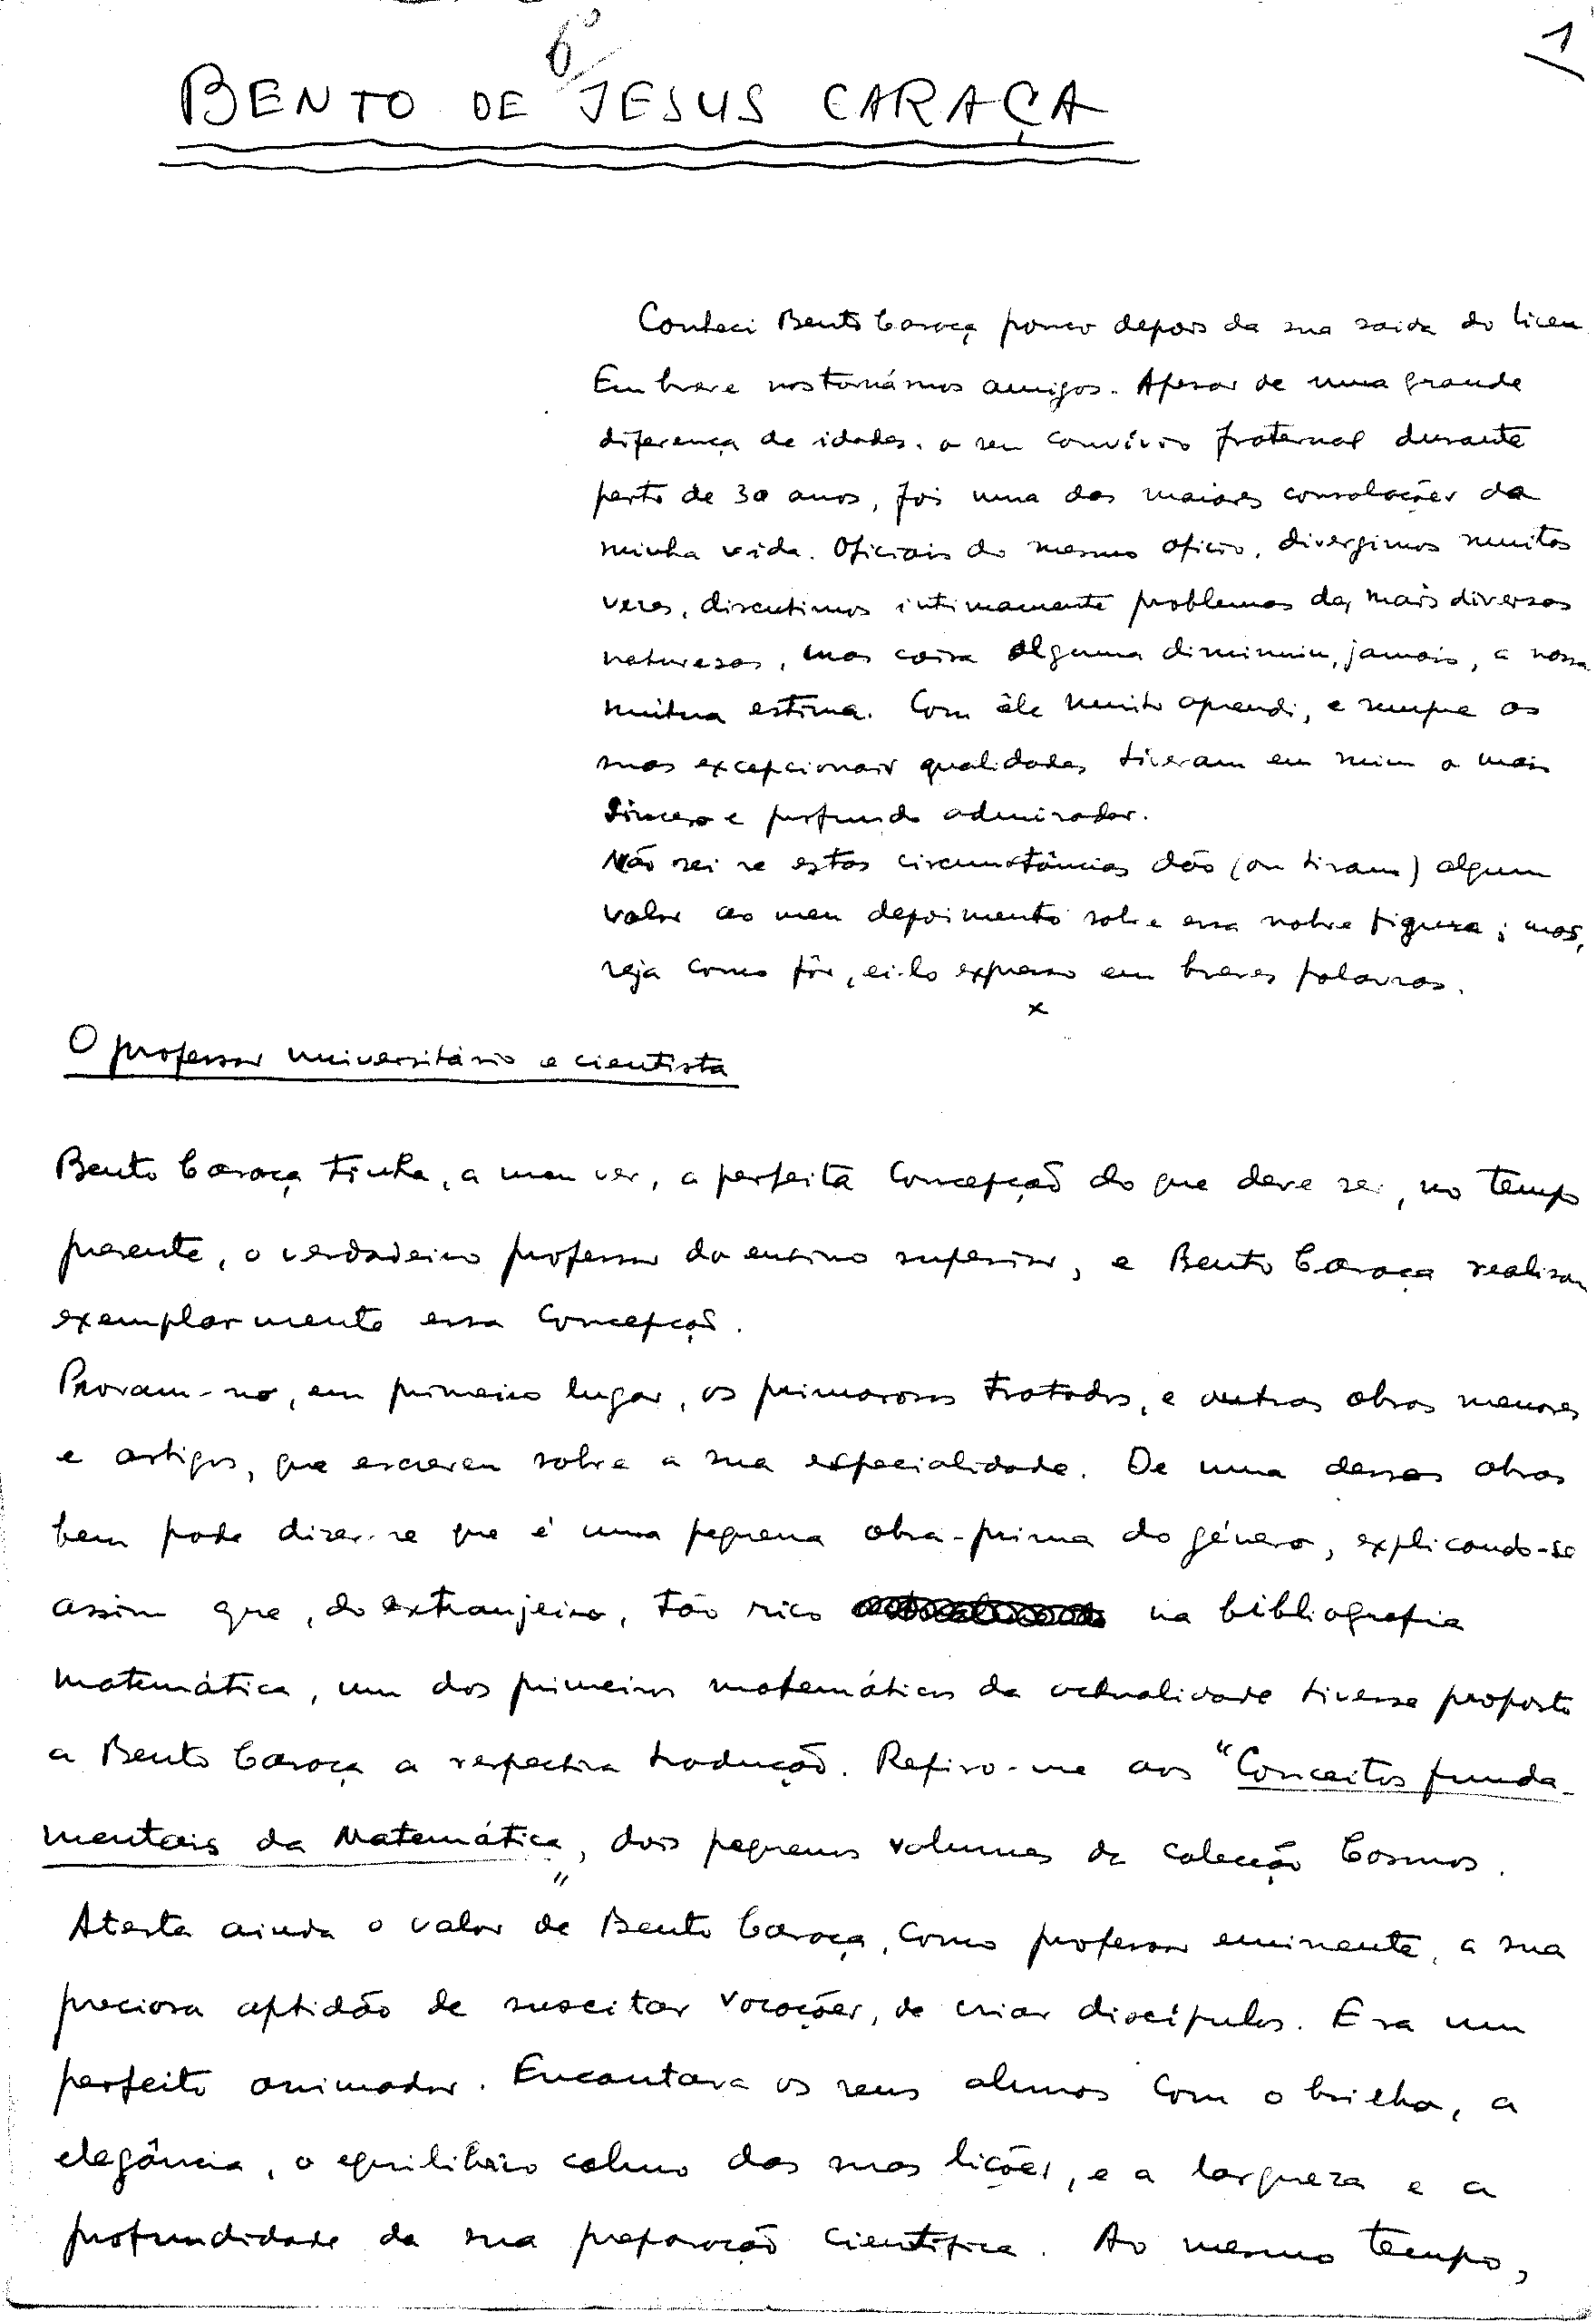 6º
1
BENTO DE JESUS CARAÇA
Conheci Bento Caraça pouco depois da sua saida do liceu.
Em breve nos tornámos amigos. Apesar de uma grande
diferença de idades, o seu convívio fraternal durante
perto de 30 anos, foi uma das maiores consolações da
minha vida. Oficiais do mesmo oficio, divergimos muitas
vezes, discutimos intimamente problemas das mais diversas
naturezas, mas coisa alguma diminuiu, jamais, a nossa
mútua estima. Com êle muito aprendi, e sempre as
suas excepcionais qualidades tiveram em mim o mais
sincero e profundo admirador.
Não sei se estas circunstâncias dão (ou tiram) algum
valor ao meu depoimento sobre essa nobre figura; mas,
seja como fôr, ei-lo expresso em breves palavras.
x
O professor universitário e cientista
Bento Caraça tinha, a meu ver, a perfeita concepção do que deve ser, no tempo
presente, o verdadeiro professor do ensino superior, e Bento Caraça realisou
exemplarmente essa concepção.
Provam-no, em primeiro lugar, os primorosos tratados, e outras obras menores
e artigos, que escreveu sobre a sua especialidade. De uma dessas obras
bem pode dizer-se que é uma pequena obra-prima do género, explicando-se
assim que, do extranjeiro, tão rico na bibliografia
matemática, um dos primeiros matemáticos da actualidade tivesse proposto
a Bento Caraça a respectiva tradução. Refiro-me aos "Conceitos funda-
mentais da Matemática", dois pequenos volumes da colecção Cosmos.
Atesta ainda o valor de Bento Caraça, como professor eminente, a sua
preciosa aptidão de suscitar vocações, de criar discípulos. Era um
perfeito animador. Encantava os seus alunos com o brilho, a
elegância, o equilibrio calmo das suas lições, e a largueza e a
profundidade da sua preparação cientifica. Ao mesmo tempo,